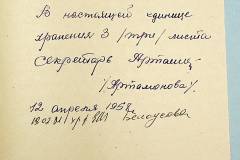 В настоящей единице
хранения 3 /три/ листа
Секретарь
/Артамонова/.
12 апреля 195
Белоусова